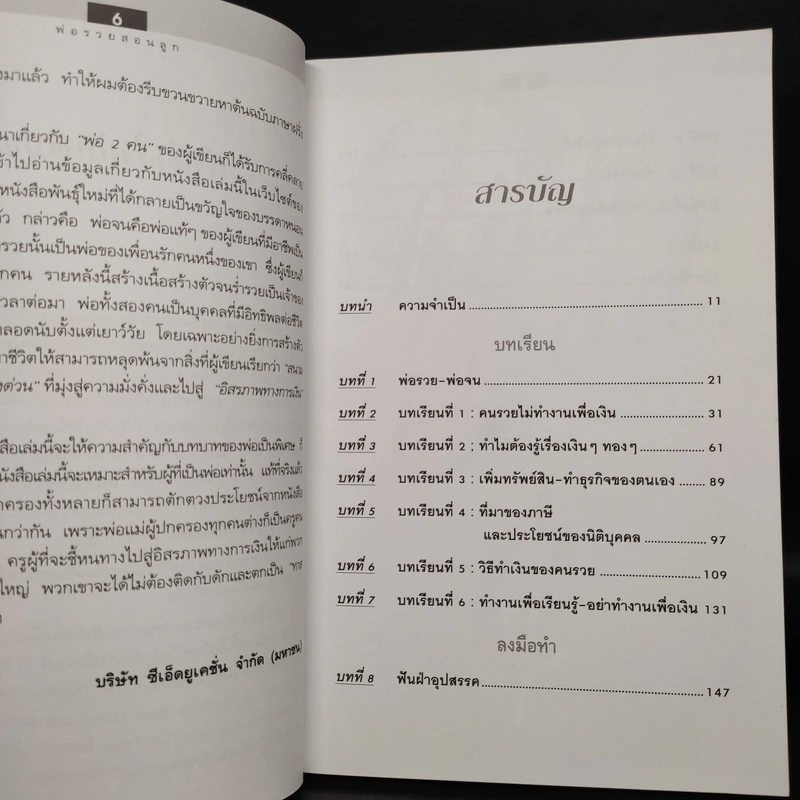 6
พ่อรวยสอนลูก
มาแล้ว ทำให้ผมต้องรีบขวนขวายหาต้นฉบับภาษาฝรั่ง
นาเกี่ยวกับ "พ่อ 2 คน" ของผู้เขียนก็ได้รับการคลี่คลาย
ข้าไปอ่านข้อมูลเกี่ยวกับหนังสือเล่มนี้ในเว็บไซต์ของ
หนังสือพันธุ์ใหม่ที่ได้กลายเป็นขวัญใจของบรรดาหนอน
กล่าวคือ พ่อจนคือพ่อแท้ๆ ของผู้เขียนที่มีอาชีพเป็น
รวยนั้นเป็นพ่อของเพื่อนรักคนหนึ่งของเขา ซึ่งผู้เขียนก็
กคน รายหลังนี้สร้างเนื้อสร้างตัวจนร่ำรวยเป็นเจ้าของ
วลาต่อมา พ่อทั้งสองคนเป็นบุคคลที่มีอิทธิพลต่อชีวิต
ลอดนับตั้งแต่เยาว์วัย โดยเฉพาะอย่างยิ่งการสร้างตัว
ชีวิตให้สามารถหลุดพ้นจากสิ่งที่ผู้เขียนเรียกว่า "สนาม
ด่วน" ที่มุ่งสู่ความมั่งคั่งและไปสู่ "อิสรภาพทางการเงิน"
สือเล่มนี้จะให้ความสำคัญกับบทบาทของพ่อเป็นพิเศษ ก็
นังสือเล่มนี้จะเหมาะสำหรับผู้ที่เป็นพ่อเท่านั้น แท้ที่จริงแล้ว
กครองทั้งหลายก็สามารถตักตวงประโยชน์จากหนังสือ
นกว่ากัน เพราะพ่อแม่ผู้ปกครองทุกคนต่างก็เป็นครูคน
ครูผู้ที่จะชี้หนทางไปสู่อิสรภาพทางการเงินให้แก่พวก
ใหญ่ พวกเขาจะได้ไม่ต้องติดกับดักและตกเป็น "ทาส
บริษัท ซีเอ็ดยูเคชั่น จำกัด (มหาชน)
สารบัญ
บทนำ ความจำเป็น ........................................ 11
บทเรียน
บทที่ 1 พ่อรวย-พ่อจน ........................................ 21
บทที่ 2 บทเรียนที่ 1 : คนรวยไม่ทำงานเพื่อเงิน .................... 31
บทที่ 3 บทเรียนที่ 2 : ทำไมต้องรู้เรื่องเงินๆ ทองๆ ............... 61
บทที่ 4 บทเรียนที่ 3 : เพิ่มทรัพย์สิน-ทำธุรกิจของตนเอง ...... 89
บทที่ 5 บทเรียนที่ 4 : ที่มาของภาษี
และประโยชน์ของนิติบุคคล ............ 97
บทที่ 6 บทเรียนที่ 5 : วิธีทำเงินของคนรวย ....................... 109
บทที่ 7 บทเรียนที่ 6 : ทำงานเพื่อเรียนรู้-อย่าทำงานเพื่อเงิน 131
ลงมือทำ
บทที่ 8 ฟันฝ่าอุปสรรค ........................................ 147